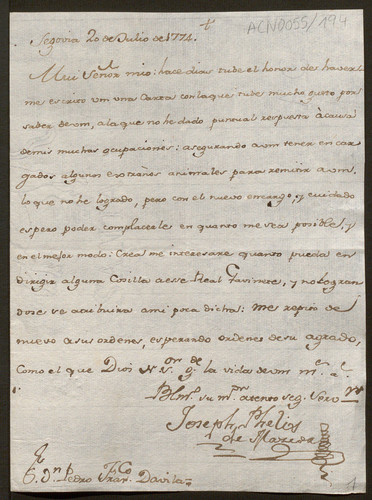 ACN0055/194
+
Segovia 20 de Julio de 1774.
Mui Señor mio: hace dias tube el honor de haverl
me escrito vm una Carta con la que tube mucho gusto por
saber de vm, a la que no he dado puntual respuesta à causa
de mis muchas ocupaciones: asegurando a vm tener en car
gados algunos extraños animales para remitir a vm.
lo que no he logrado, pero con el nuevo encargo, y cuidado
espero poder complacerle en quanto me sea posible, y
en el mejor modo: Crea me interesare quanto pueda en
dirigir alguna Cosilla a ese Real Gavinete, y no logran
dose se atribuira a mi poca dicha: me repito de
nuevo a sus ordenes, esperando ordenes de su agrado,
Como el que Dios N. Sr. gde la vida de vm ms. as.
BLmo. su mor. atento seg. servor
Joseph Phelix
de Maeda
Sr. Dn Pedro Franco Davila
1